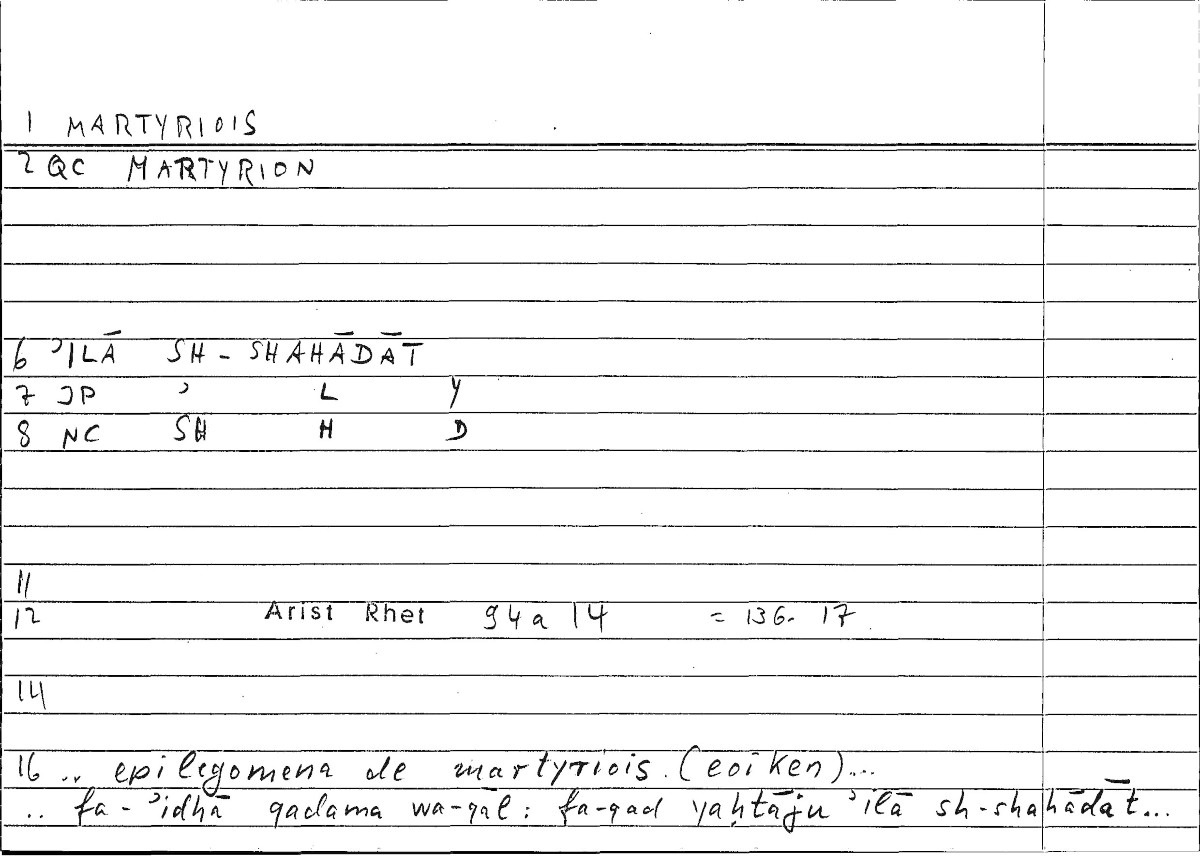 1 MARTYRIOIS
2 QC MARTYRION
6 ʾILĀ SH-SHAHĀDĀT
7 JP ʾ L Y
8 NC SH H D
11
12 Arist Rhet 94a 14 = 136. 17
14
16 .. epilegomena de martyriois. (eoiken)...
.. fa-ʾidhā qadama wa-qāl: fa-qad yaḥtāju ʾilā sh-shahādāt...